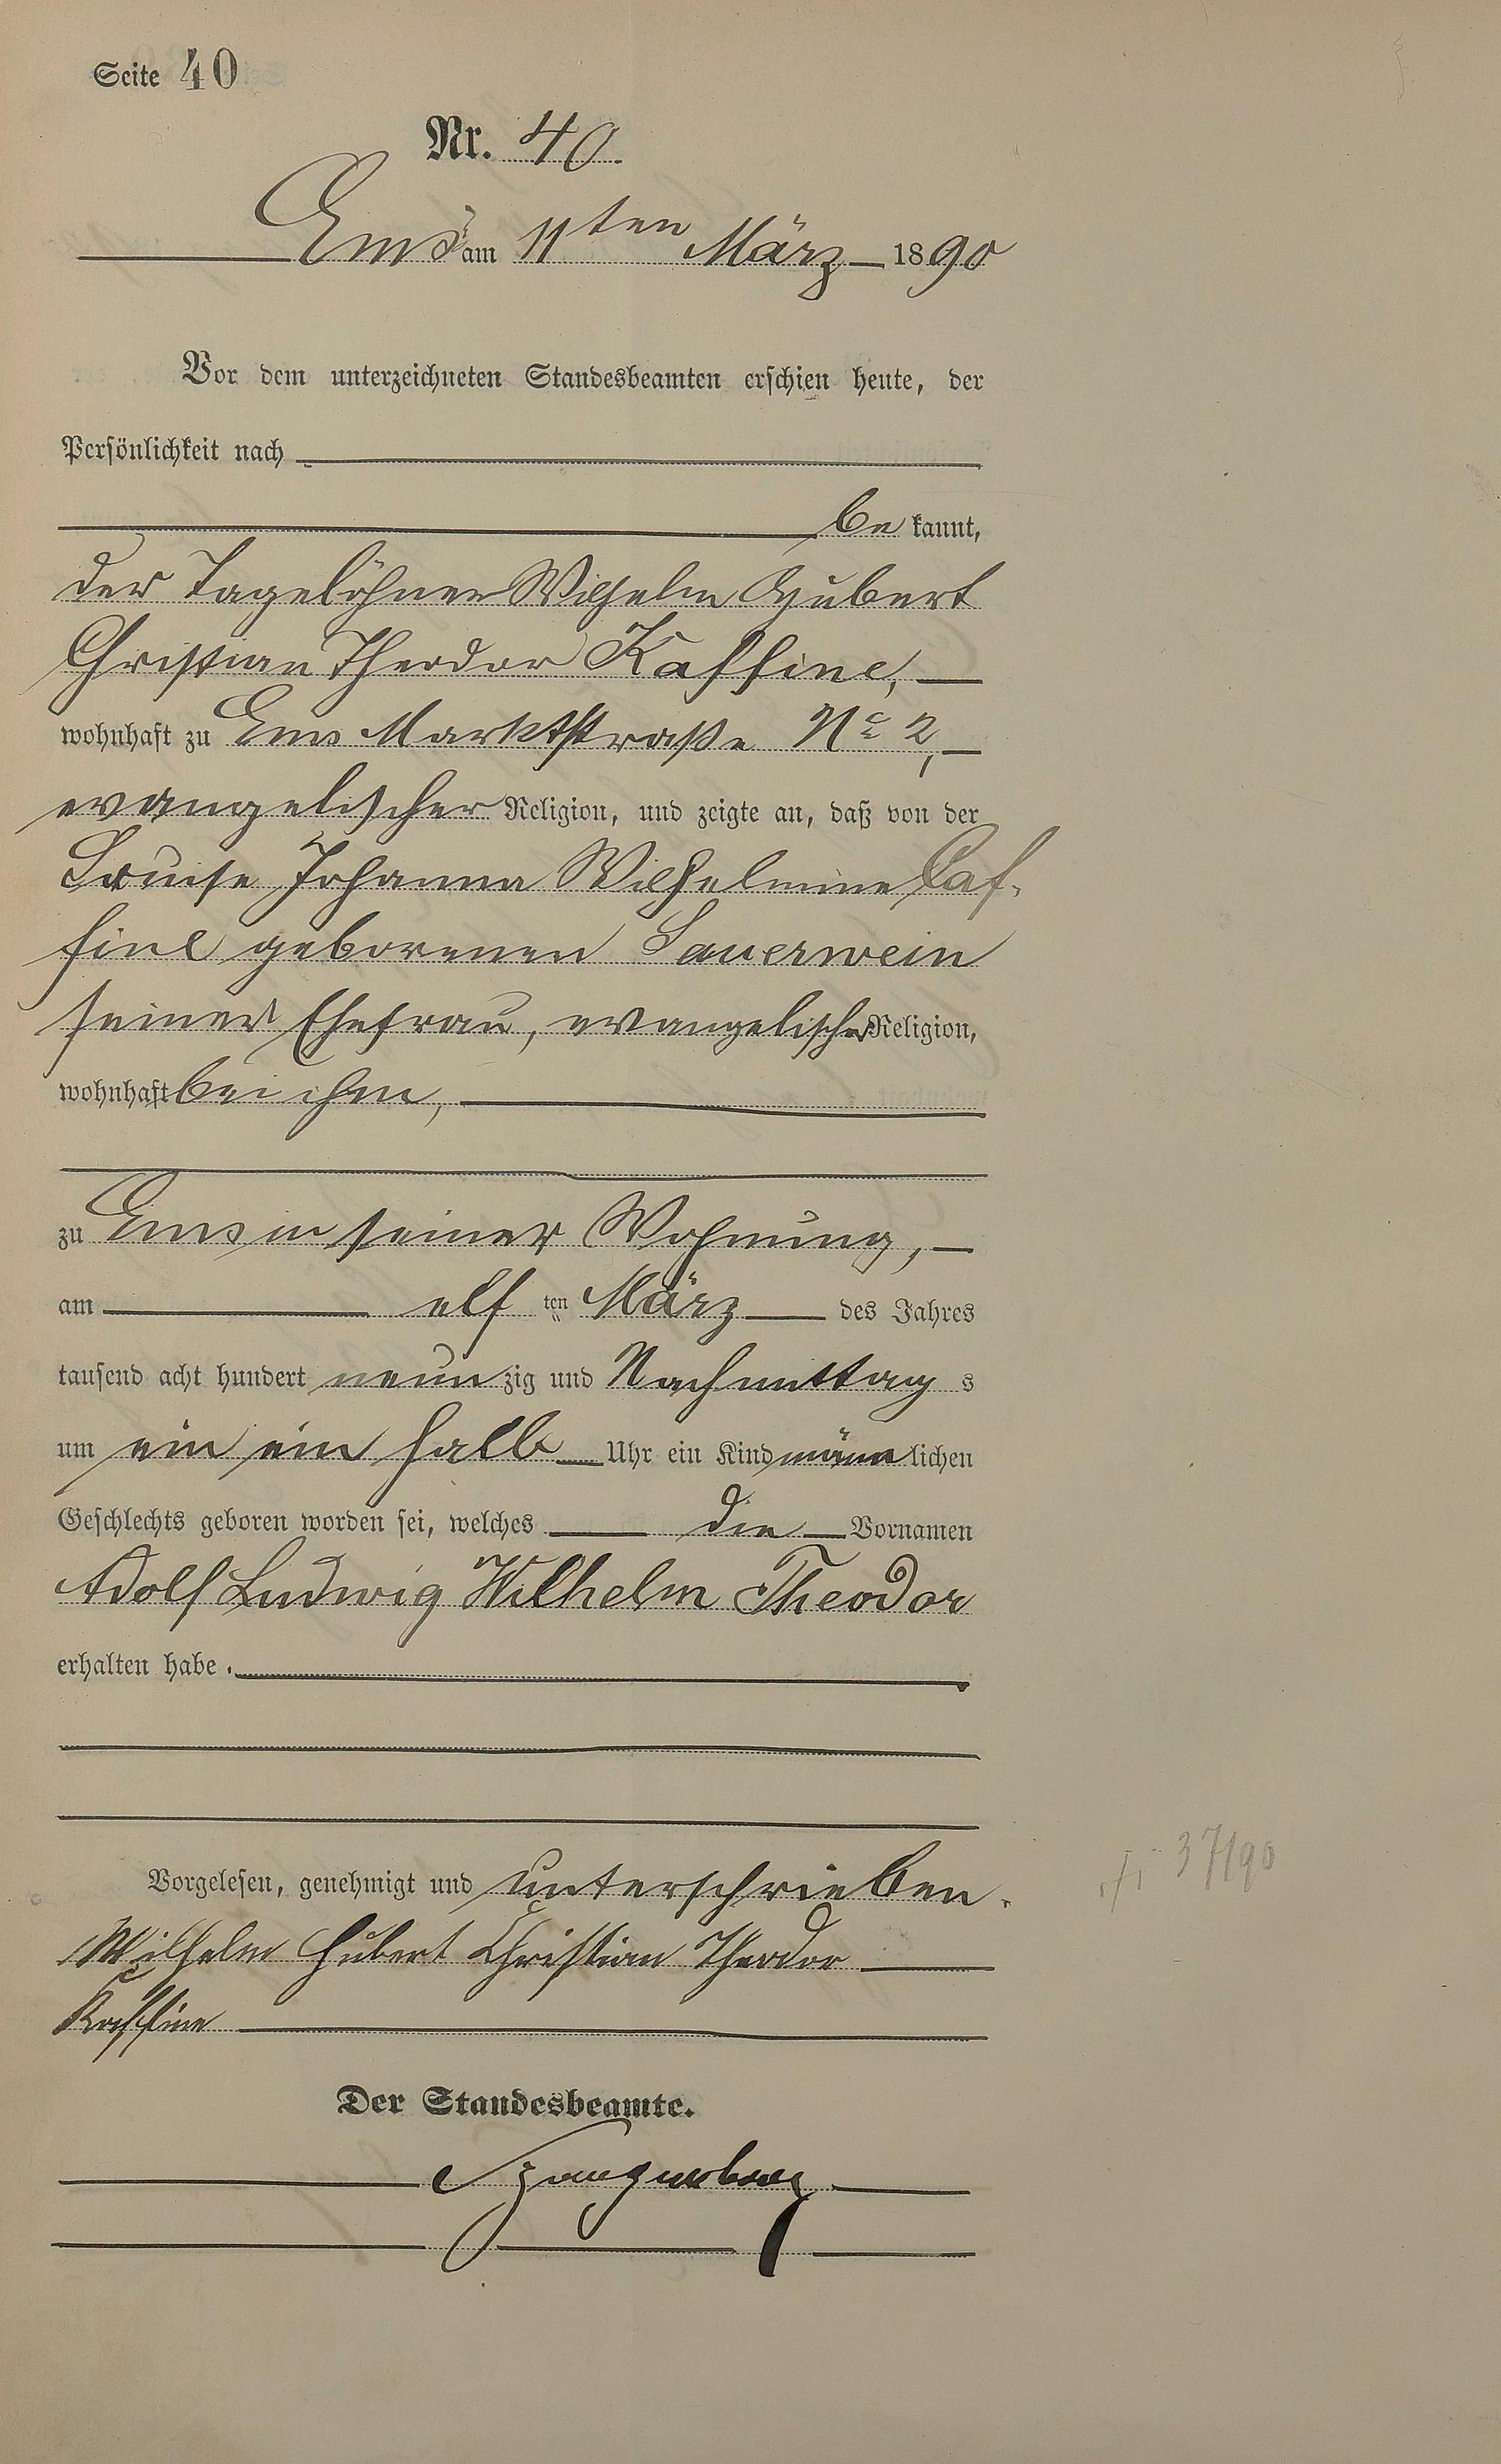 Seite 40
Nr. 40.
Ems am 11ten März 1890
Vor dem unterzeichneten Standesbeamten erschien heute, der
Persönlichkeit nach
be kannt,
der Tagelöhner Wilhelm Hubert
Christian Theodor Kaffine,
wohnhaft zu Ems Marktstraße No 2,
evangelischer Religion, und zeigte an, daß von der
Louise Johanna Wilhelmine Caf-
fine geborenen Sauerwein
seiner Ehefrau, evangelischer Religion,
wohnhaft bei ihm,
zu Ems in seiner Wohnung,
am elf ten März des Jahres
tausend acht hundert neun zig und Nachmittag s
um ein ein halb Uhr ein Kind männ lichen
Geschlechts geboren worden sei, welches die Vornamen
Adolf Ludwig Wilhelm Theodor
erhalten habe.
Vorgelesen, genehmigt und unterschrieben.
Wilhelm Hubert Christian Theodor
Kaffine
Der Standesbeamte.
37/90